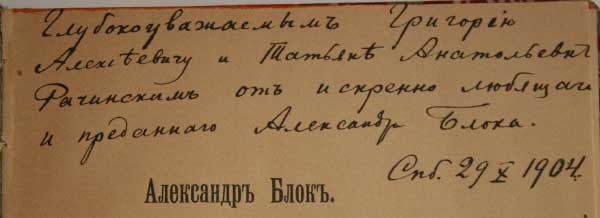 Глубокоуважаемымъ Григорію
Алексѣевичу и Татьянѣ Анатольевнѣ
Рачинскимъ отъ искренно любящаго
и преданнаго Александра Блока.
Спб. 29 X 1904.
Александръ Блокъ.